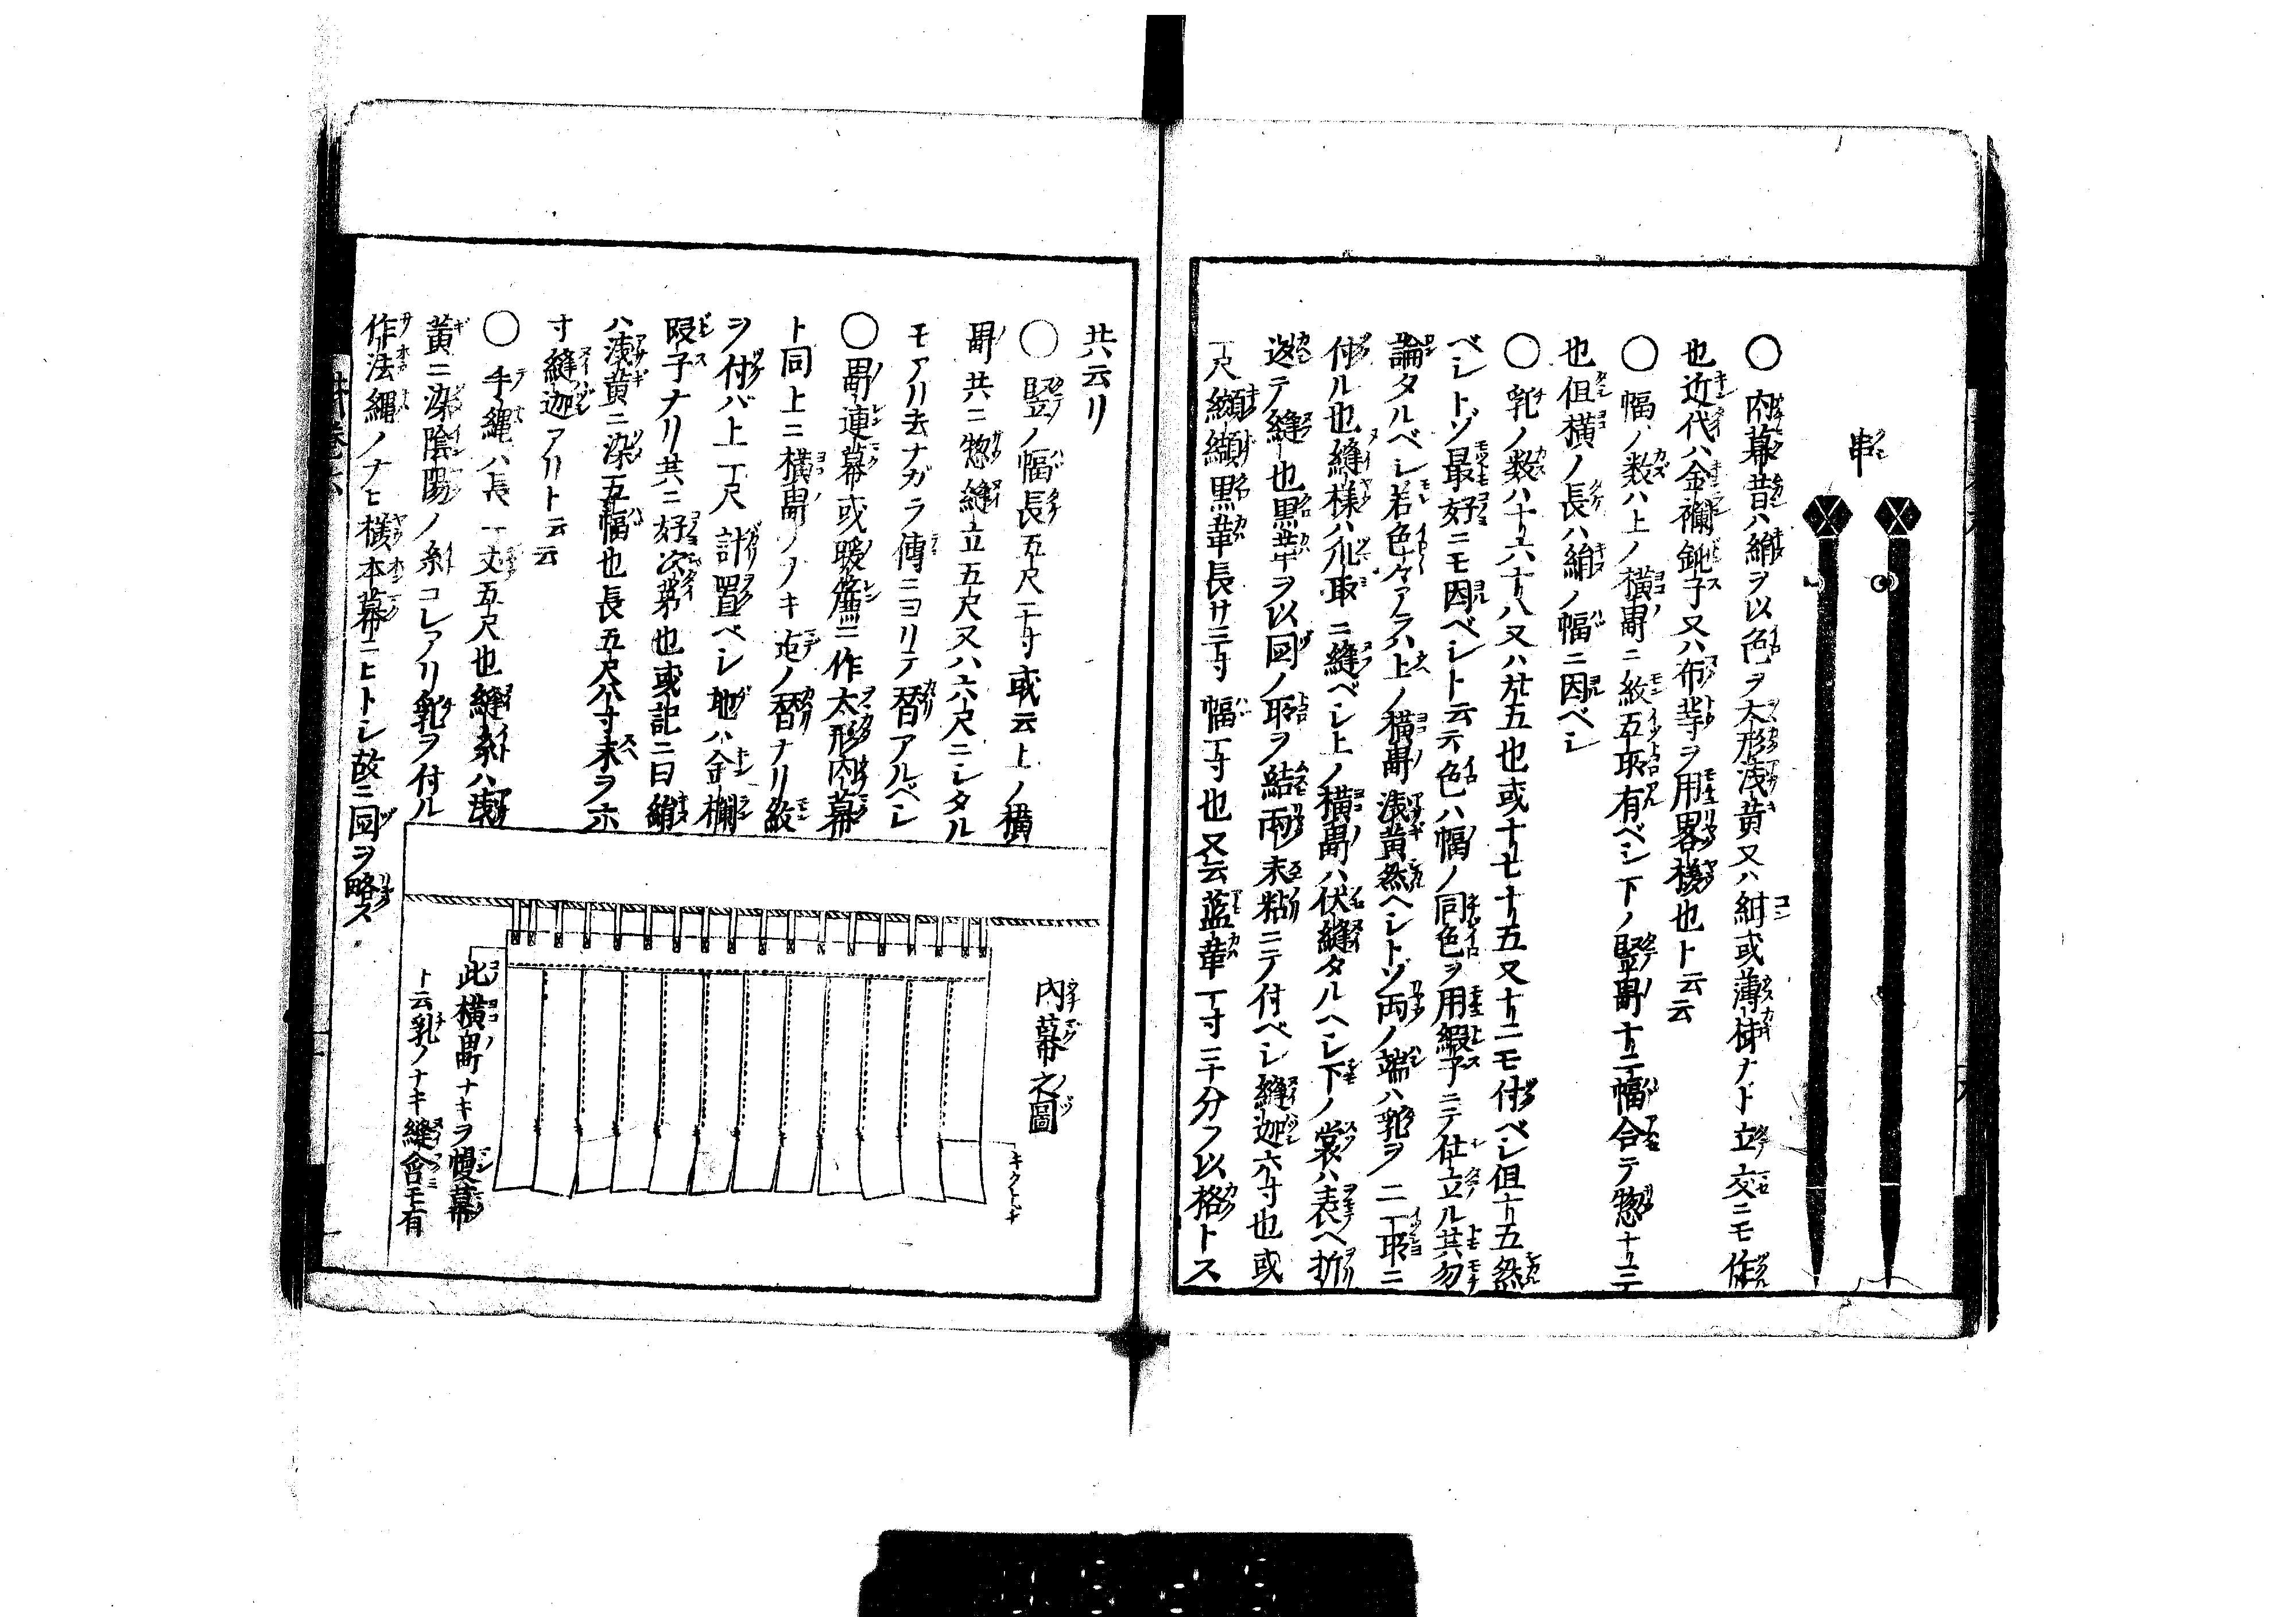 串
〇 内幕昔ハ絹ヲ以色ヲ大形浅黄又ハ紺或薄柿ナド立交ニモ作
也近代ハ金襴鈍子又ハ布等ヲ用畧様也ト云云
〇 幅ノ数ハ上ノ横冨ニ紋五所有ベシ下ノ竪冨十二幅合テ惣十三
也但横ノ長ハ絹ノ幅ニ因ベシ
〇 乳ノ数ハ十六十八又ハ廿五也或十七十五又十二モ付ベシ但十五然
ベシトゾ最好ニモ因ベシト云云色ハ幅ノ同色ヲ用緞子ニテ仕立ル共勿
論タルベシ若色々アラハ上ノ横冨浅黄然ヘシトゾ両ノ端ハ乳ヲ二一所ニ
付ル也縫様ハ爪取ニ縫ベシ上ノ横冨ハ伏縫タルヘシ下ノ裳ハ表ヘ折
返テ縫也黒革ヲ以図ノ所ヲ結両ノ末粘ニテ付ベシ縫迦六寸也或
一尺纐纈黒革長サ三寸幅一寸也又云藍革一寸二分ヲ以格トス
共云リ
〇 竪ノ幅長五尺二寸或云上ノ横
冨共ニ惣縫立五尺又ハ六尺ニシタル
モアリ去ナガラ傳ニヨリテ替アルベシ
〇 冨連幕或暖簾ニ作大形内幕
ト同上ニ横冨ノナキ迠ノ替ナリ紋
ヲ付バ上一尺計置ベシ地ハ金襴
段子ナリ共ニ好次第也或記ニ曰絹
ハ浅黄ニ染五幅也長五尺八寸末ヲ六
寸縫迦アリト云云
〇 手縄ハ長一丈五尺也縫糸ハ浅
黄ニ染陰陽ノ糸コレアリ乳ヲ付ル
作法縄ノナヒ様本幕ニヒトシ故ニ図ヲ略ス
内幕之圖
キクトヂ
此横冨ナキヲ幔幕
ト云乳ノナキ縫含モ有